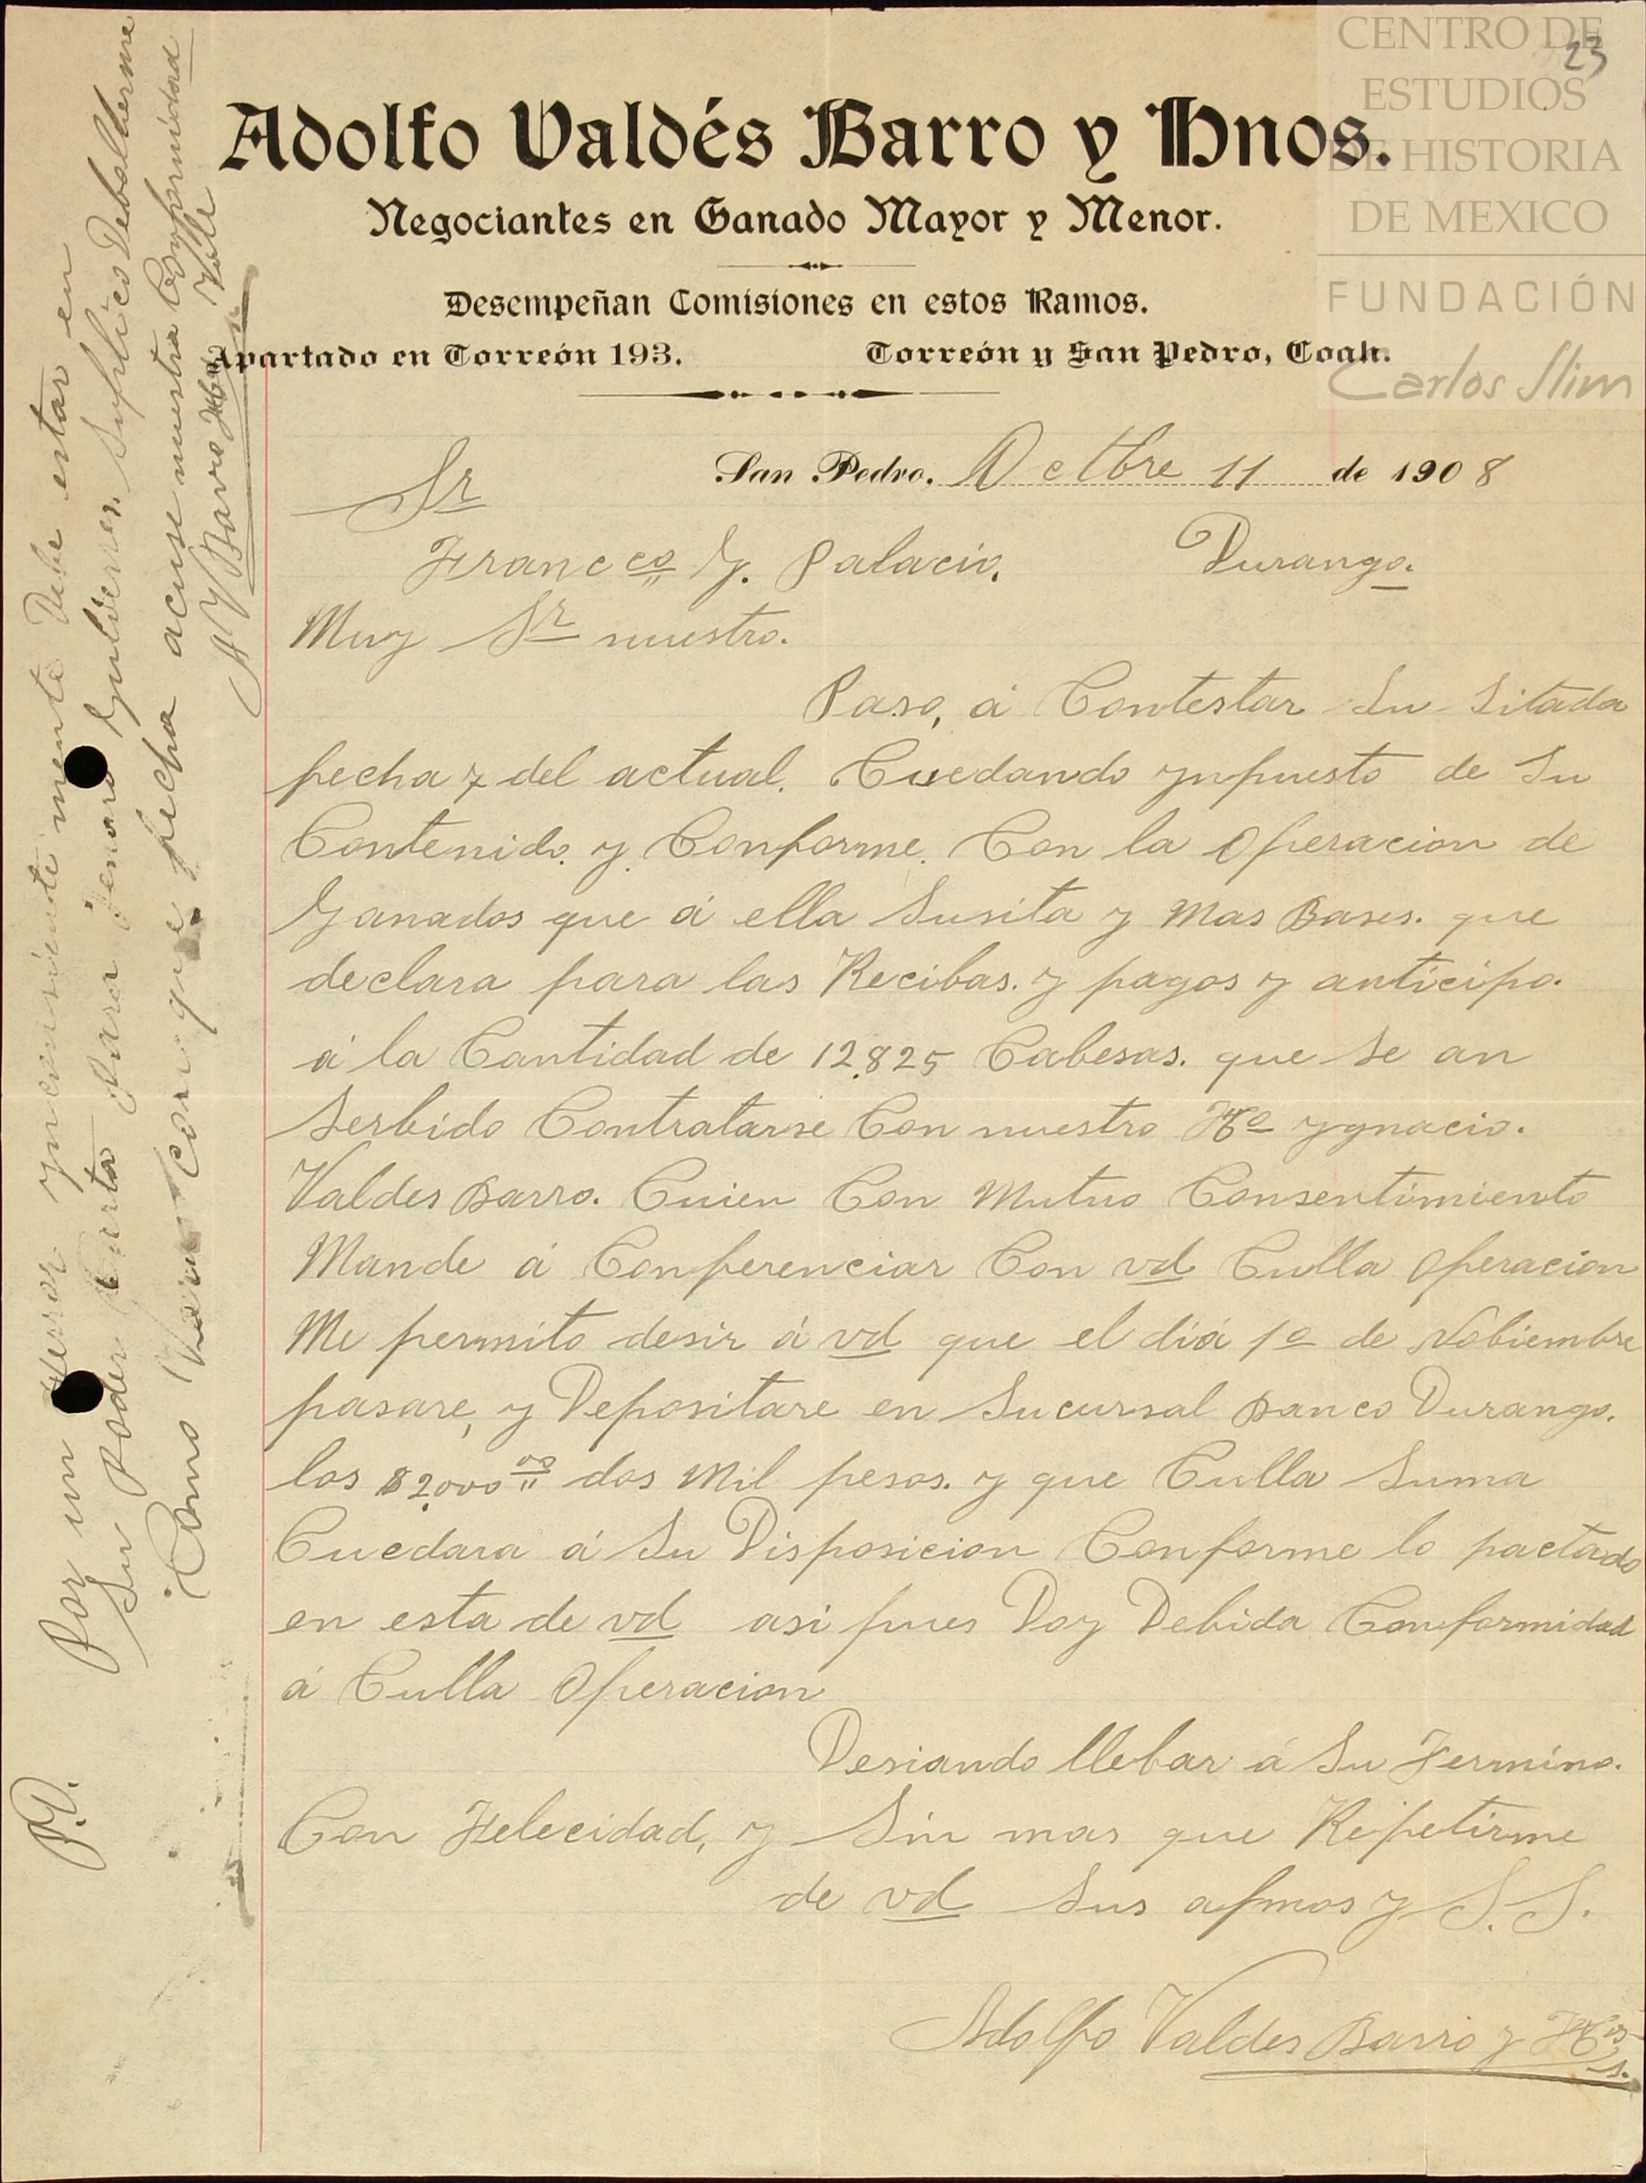 CENTRO DE
ESTUDIOS
DE HISTORIA
DE MEXICO
FUNDACIÓN
Carlos Slim
23
Adolfo Valdés Barro y Hnos.
Negociantes en Ganado Mayor y Menor.
Desempeñan Comisiones en estos Ramos.
Apartado en Torreón 193. Torreón y San Pedro, Coah.
San Pedro, Octbre 11 de 1908
Sr
Francco G. Palacio. Durango.
Muy Sr nuestro.
Paso, á Contestar Su Sitada
fecha 7 del actual. Cuedando ynpuesto de Su
Contenido. y Conforme. Con la Operacion de
Ganados que á ella Susita y Mas Bases. que
declara para las Recibas. y pagos y anticipo.
á la Cantidad de 12,825 Cabesas. que Se an
Serbido Contratarse Con nuestro Ho ygnacio.
Valdes Barro. Cuien Con Mutuo Consentimiento
Mande á Conferenciar Con vd Culla Operacion
Me permito desir á vd que el diá 1o de Nobiembre
pasare, y Depositare en Sucursal Banco Durango.
los $2,000 00 dos Mil pesos. y que Culla Suma
Cuedara á Su Disposicion Conforme lo pactado
en esta de vd asi pues Doy Debida Conformidad
á Culla Operacion
Desiando llebar á Su Termino.
Con Felecidad, y Sin mas que Repetirme
de vd Sus afmos y S. S.
Adolfo Valdes Barro y Hos
P.D. Por un yerror ynconsiente mente Debe estar en
Su Poder Carta Para Jenaro Gutierres. Suplico Debolberme
Como Veran Con que fecha acuse nuestra Conformidad
A V Barro Hos Vale